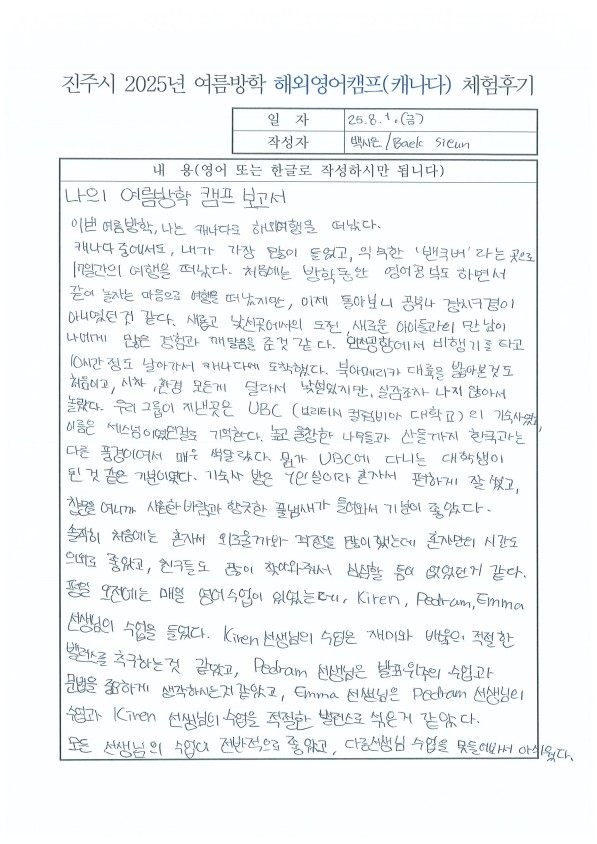 진주시 2025년 여름방학 해외영어캠프(캐나다) 체험후기
일 자
25.8.1.(금)
작성자
백시은/Baek Sieun
내 용(영어 또는 한글로 작성하시만 됩니다)
나의 여름방학 캠프 보고서
이번 여름방학, 나는 캐나다로 해외여행을 떠났다.
캐나다 중에서도, 내가 가장 많이 들었고, 익숙한 '밴쿠버' 라는 곳으로
17일간의 여행을 떠났다. 처음에는 방학동안 영어공부도 하면서
같이 놀자는 마음으로 여행을 떠났지만, 이제 돌아보니 공부나
아니였던 것 같다. 새롭고 낯선곳에서의 도전, 새로운 아이들과의 만남이
나에게 많은 경험과 깨달음을 준것 같다. 인천공항에서 비행기를 타고
10시간 정도 날아가서 캐나다에 도착했다. 북아메리카 대륙을 밟아본것도
처음이고, 시차, 환경 모든게 달라서 낯설었지만, 실감조차 나지 않아서
놀랐다. 우리 그룹이 지낸곳은 UBC (브리티시 컬럼비아 대학교)의 기숙사였고,
이름은 기억한다. 높고 울창한 나무들과 산들까지 한국과는
다른 풍경이어서 매우 색달랐다. 뭔가 UBC에 다니는 대학생이
된 것 같은 기분이였다. 기숙사 방은 1인실이라 혼자서 편하게 잘 썼고,
창문을 여니까 시원한 바람과 향긋한 풀냄새가 들어와서 기분이 좋았다.
솔직히 처음에는 혼자서 외로울까봐 걱정을 많이 했는데 혼자만의 시간도
의외로 좋았고, 친구들도 많이 찾아와줘서 심심할 틈이 없었던거 같다.
평일 오전에는 매일 영어수업이 있었는데, Kiren, Pedram, Emma
선생님의 수업을 들었다. Kiren선생님의 수업은 재미와 배움의 적절한
밸런스를 추구하는것 같았고, Pedram 선생님은 발표위주의 수업과
문법을 중요하게 생각하시는거 같았고, Emma 선생님은 Pedram 선생님의
수업과 Kiren 선생님의 수업을 적절한 밸런스로 섞은거 같았다.
모든 선생님의 수업이 전반적으로 좋았고, 다른선생님 수업을 못들어봐서 아쉬웠다.